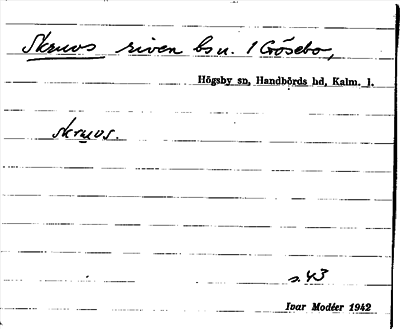 Skruvs riven bsn. 1 Grösebo,
Högsby sn, Handbörds hd, Kalm. l.
skruvs.
s. 43
Ivar Modéer 1942